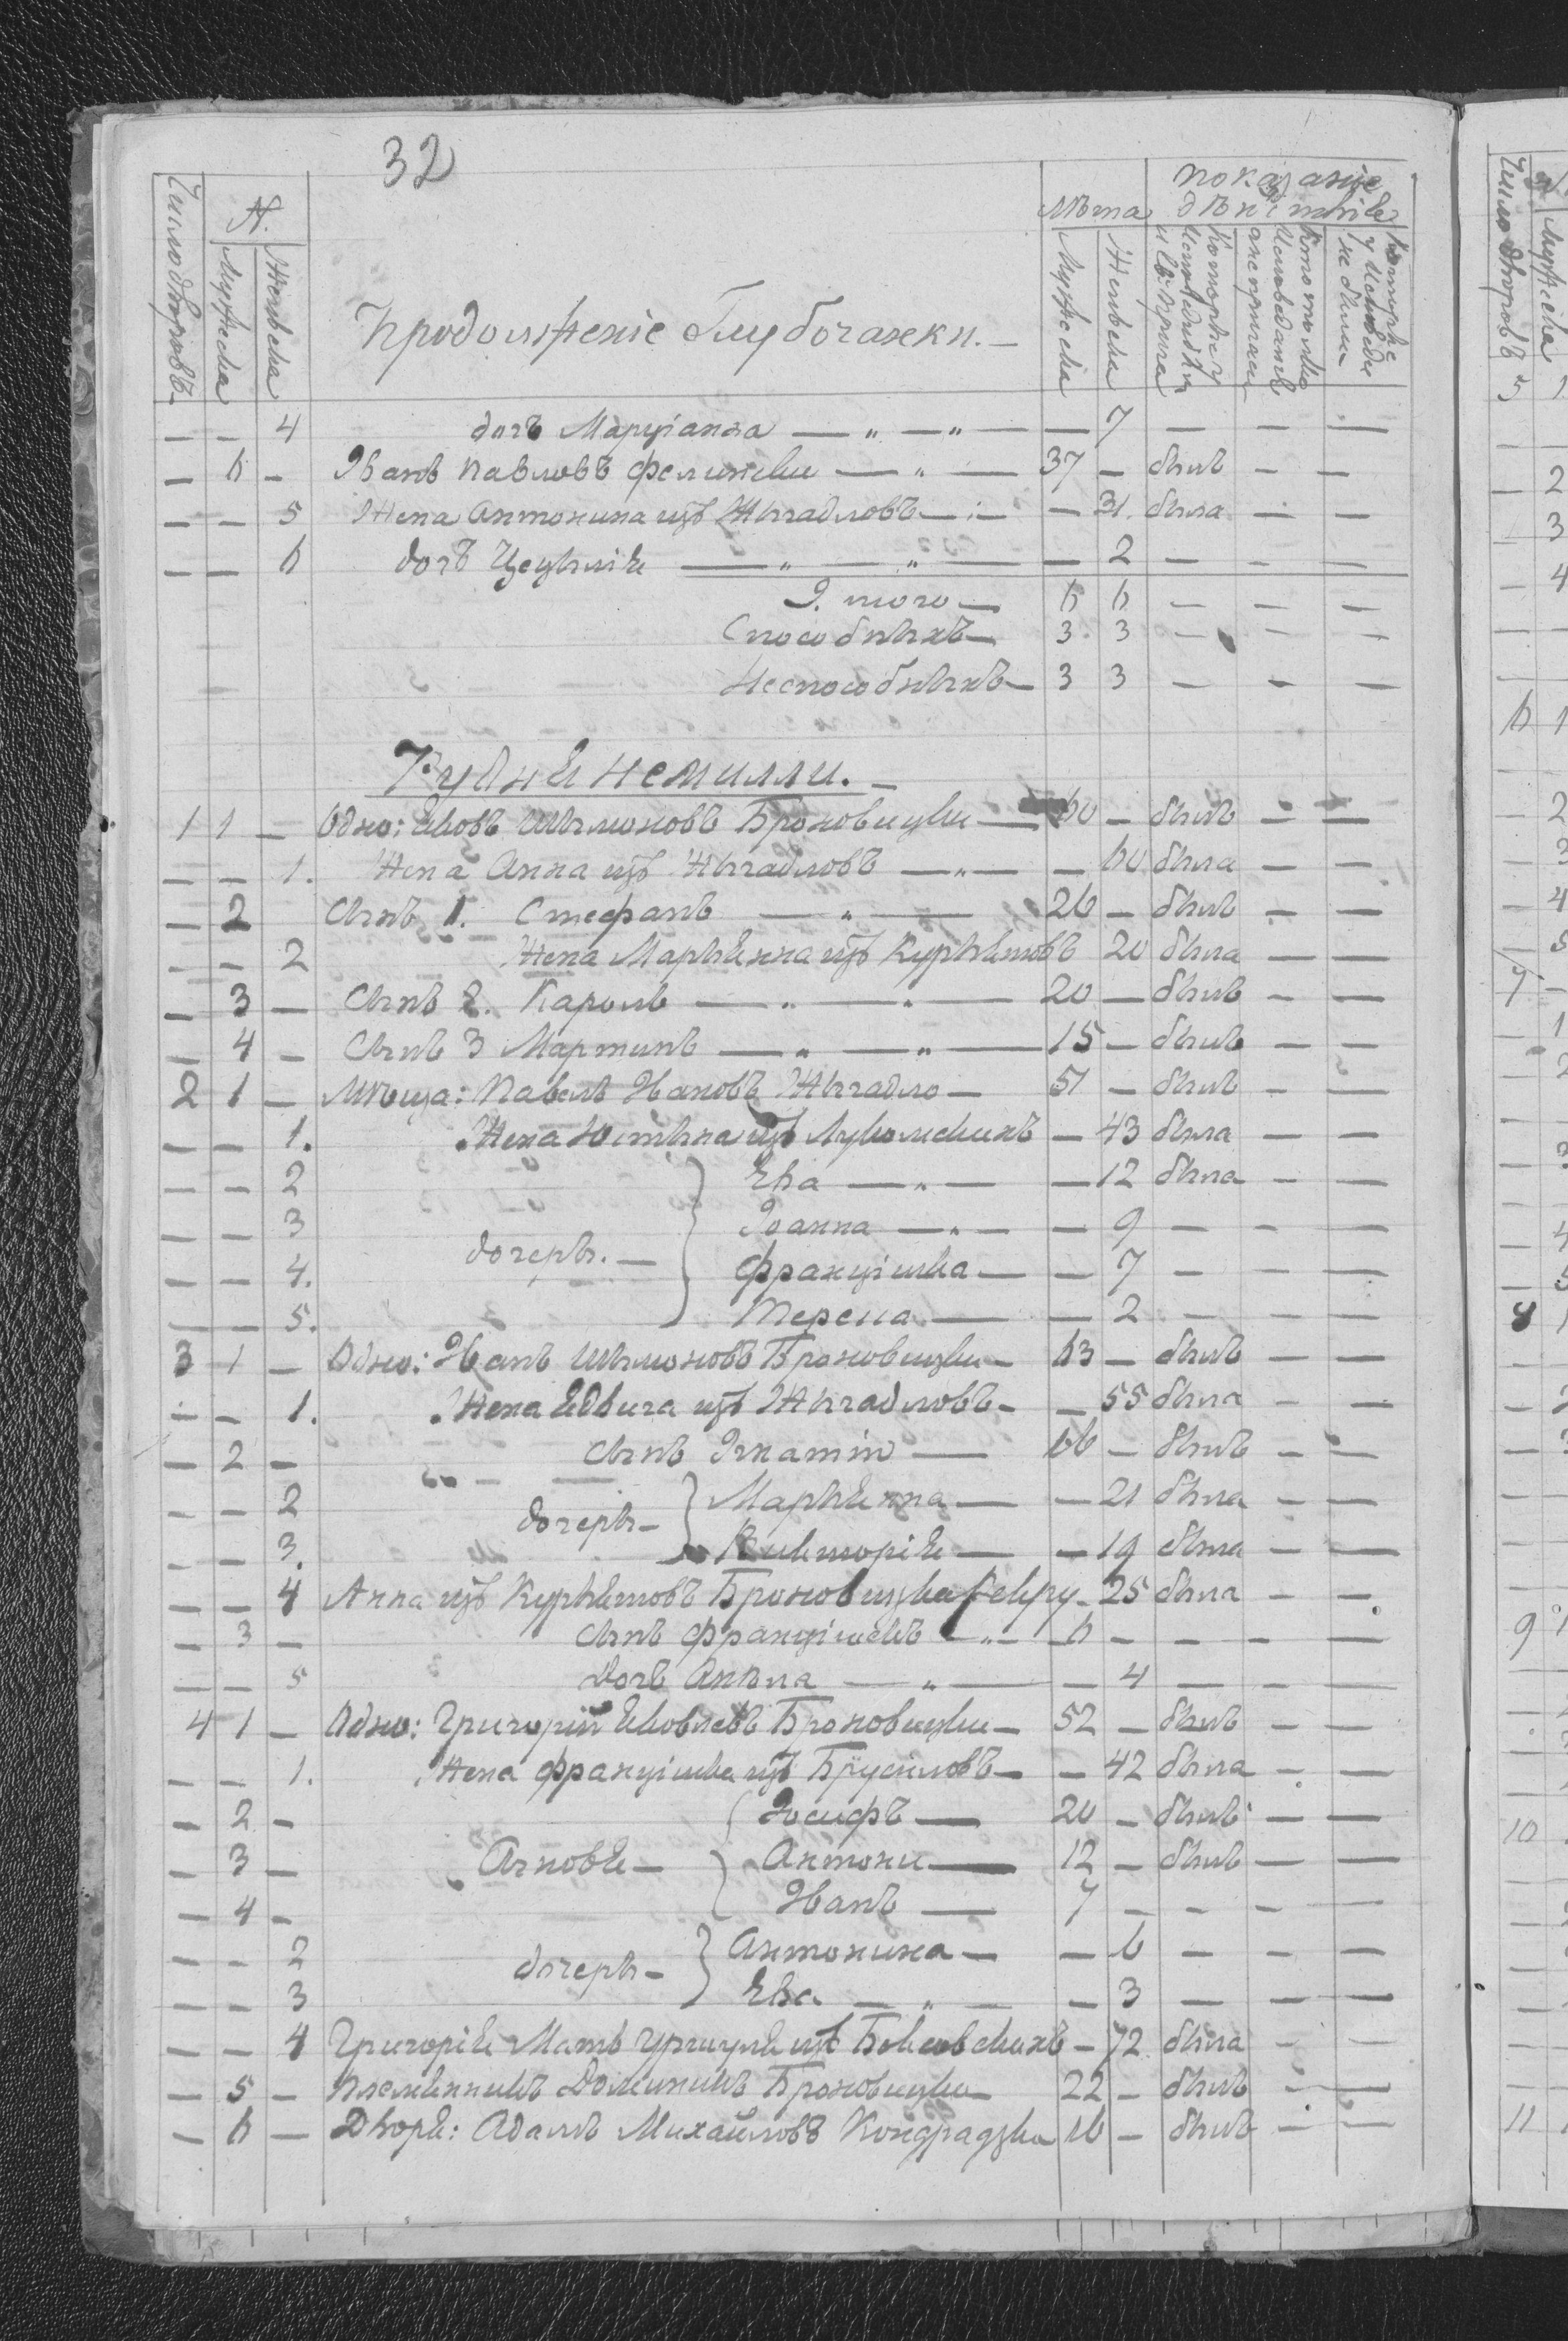 32
Число дворовъ
N.
Мужеска
Женеска
Продолженіе Глубочанки. —
Лѣта
Мужеска
Женеска
показаніе
— — 4 дочь Маруіанна — „ — „ — — 7 — — —
— 6 — Иванъ Павловъ Фелински — „ — 37 — былъ — —
— — 5 Жена Антонина изъ Жыгадловъ — — 31. была — —
— — 6 дочь Цецыліѣ — „ — „ — — 2 — — —
И. того — 6 6 — — —
Способныхъ — 3 3 — — —
Неспособныхъ — 3 3 — — —
Рудня Немилли. —
1 1 — Одно: Яковъ Шымоновъ Броновицки — 60 — былъ — —
— — 1. Жена Анна изъ Жыгадловъ — „ — — 60 была — —
— 2 Сынъ 1. Стефанъ — „ — 26 — былъ — —
— — 2 Жена Марыянна изъ Курыятовъ 20 была — —
— 3 — Сынъ 2. Кароль — „ — „ — 20 — былъ — —
— 4 — Сынъ 3 Мартинъ — „ — „ — 15 — былъ — —
2 1 — Мѣща: Павелъ Ивановъ Жыгадло — 51 — былъ — —
— — 1. Жена Юстына изъ Лукомскихъ — 43 была — —
— — 2 Ева — „ — — 12 была — —
— — 3 Іоанна — „ — — 9 — — —
дочеры. —
— — 4. Францішка — — 7 — — —
— — 5. Тереса — — 2 — — —
3 1 — Одно: Иванъ Шымоновъ Броновицки — 63 — былъ — —
— — 1. Жена Ядвига изъ Жыгадловъ — — 55 была — —
— 2 — сынъ Игнатій — 16 — былъ — —
— — 2 Марыянна — — 21 была — —
дочеры —
— — 3. Викторіѣ — — 19 была — —
— — 4 Анна изъ Курыятовъ Броновицка — 25 была — —
— 3 — сынъ Францішекъ — „ — 6 — — — —
— — 5 Дочь Анѣла — „ — — 4 — — —
4 1 — Одно: Григорій Яковлевъ Броновицки — 52 — былъ — —
— — 1. Жена Францішка изъ Брусиловъ — — 42 была — —
— 2 — Іосифъ — 20 — былъ — —
— 3 — Сыновѣ — Антони — 12 — былъ — —
— 4 — Иванъ — 7 — — — —
— — 2 Антонина — — 6 — — —
дочеры —
— — 3 Ева — „ — — 3 — — —
— — 4 Григоріѧ Мать Уршуля изъ — 72 была — —
— 5 — Племянникъ Доминикъ Броновицки — 22 — былъ — —
— 6 — Дворя: Адамъ Михайловъ Кондрадзки 16 — былъ — —